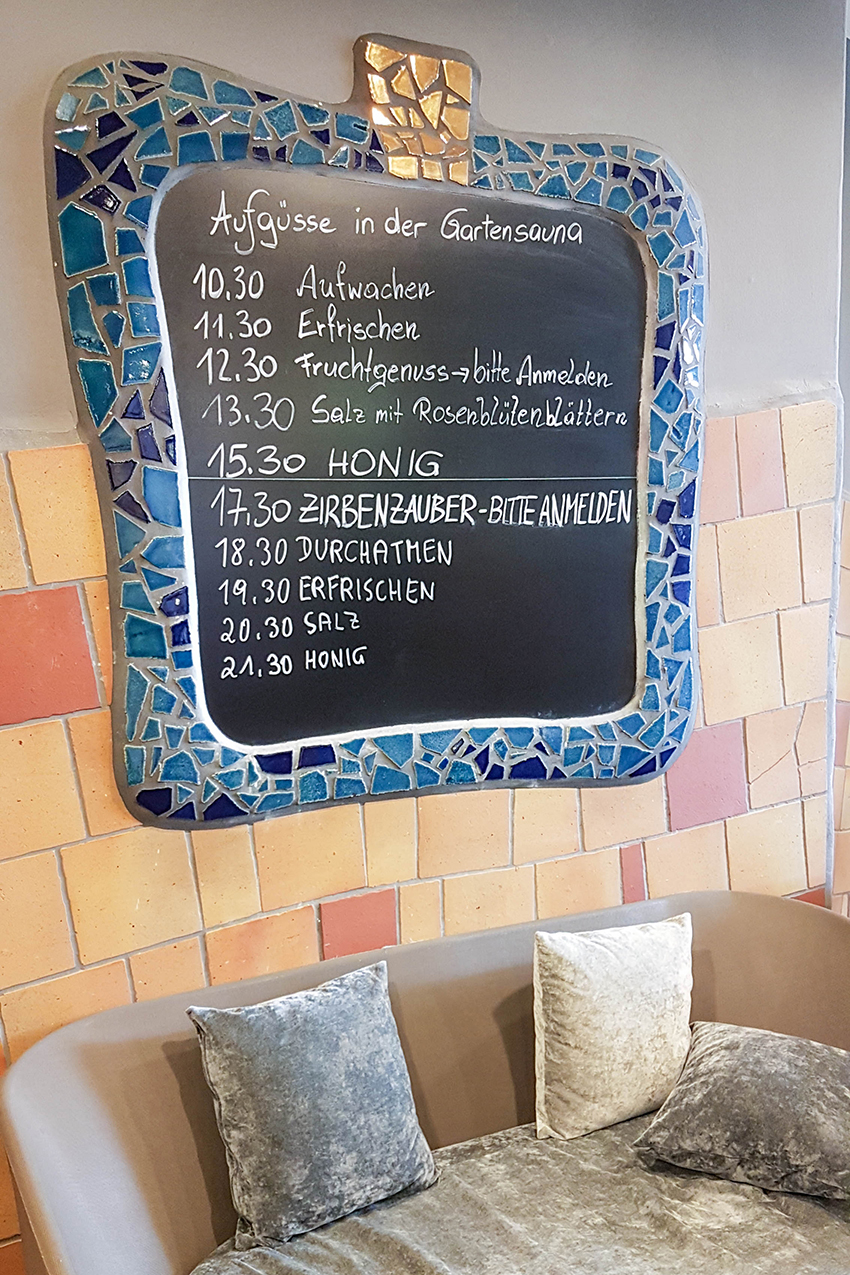 Aufgüsse in der Gartensauna
10.30 Aufwachen
11.30 Erfrischen
12.30 Fruchtgenuss → bitte Anmelden
13.30 Salz mit Rosenblütenblättern
15.30 HONIG
17.30 ZIRBENZAUBER - BITTE ANMELDEN
18.30 DURCHATMEN
19.30 ERFRISCHEN
20.30 SALZ
21.30 HONIG